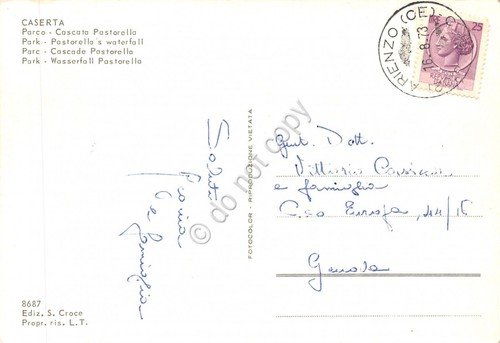 CASERTA
Parco - Cascata Pastorella
Park - Pastorello's waterfall
Parc - Cascade Pastorella
Park - Wasserfall Pastorello
25
ARIENZO (CE)
16.8.73
Saluti
e famiglia
FOTOCOLOR - RIPRODUZIONE VIETATA
do not copy
Gent. Dott.
Vittorio
e famiglia
C.so Europa, 44/15
Genova
8687
Ediz. S. Croce
Propr. ris. L.T.